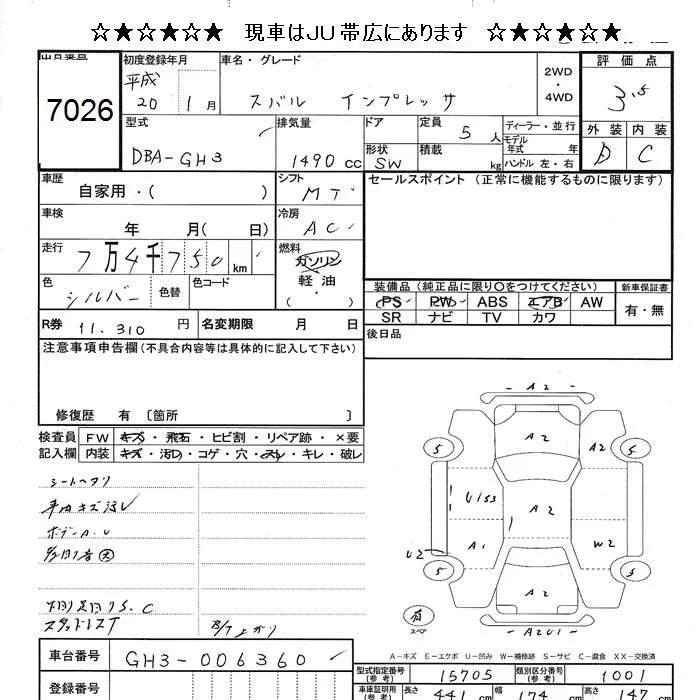 ☆★☆★☆★ 現車はJU帯広にあります ☆★☆★☆★
出品番号
7026
初度登録年月
平成 20 1月
車名・グレード
スバル インプレッサ
2WD
・
4WD
評価点
3.5
外装 内装
D C
型式
DBA-GH3
排気量
1490 cc
ドア
形状
SW
定員
5 人
積載
kg
ディーラー・並行
モデル年式 年
ハンドル 左・右
車歴
自家用・( )
シフト
MT
車検
年 月( 日)
冷房
AC
走行
7万4千750 km
燃料
ガソリン
軽油
( ・ )
色
シルバー
色替
色コード
R券 11,310 円
名変期限 月 日
セールスポイント (正常に機能するものに限ります)
装備品 (純正品に限り○をつけてください)
新車保証書
PS PW ABS エアB AW
SR ナビ TV カワ
有・無
後日品
注意事項申告欄 (不具合内容等は具体的に記入して下さい)
修復歴 有 〔箇所 〕
検査員記入欄
FW キズ・飛石・ヒビ割・リペア跡・×要
内装 キズ・汚レ・コゲ・穴・スレ・キレ・破レ
シートヘタリ
車内キズ汚レ
ボデーA.U
スタッドレスT
B/T上がり
A2
A2
A2
5
5
U153
A2
A1
W2
U2
5
5
A2
A2U1
有
スペア
A-キズ E-エクボ U-凹み W-補修跡 S-サビ C-腐食 XX-交換済
車台番号
GH3-006360
登録番号
型式指定番号(参考)
15705
類別区分番号(参考)
1001
車庫証明用(参考)
長さ 441 cm
幅 174 cm
高さ 147 cm